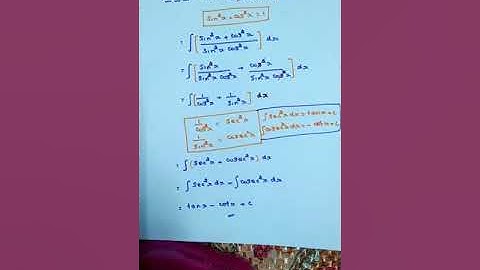 sin²x + cos²x = 1
= ∫[ sin²x + cos²x / sin²x cos²x ] dx
= ∫[ sin²x / sin²x cos²x + cos²x / sin²x cos²x ] dx
= ∫[ 1/cos²x + 1/sin²x ] dx
1/cos²x = sec²x
1/sin²x = cosec²x
∫sec²x dx = tanx + c
∫cosec²x dx = - cotx + c
= ∫(sec²x + cosec²x) dx
= ∫sec²x dx - ∫cosec²x dx
= tanx - cotx + c